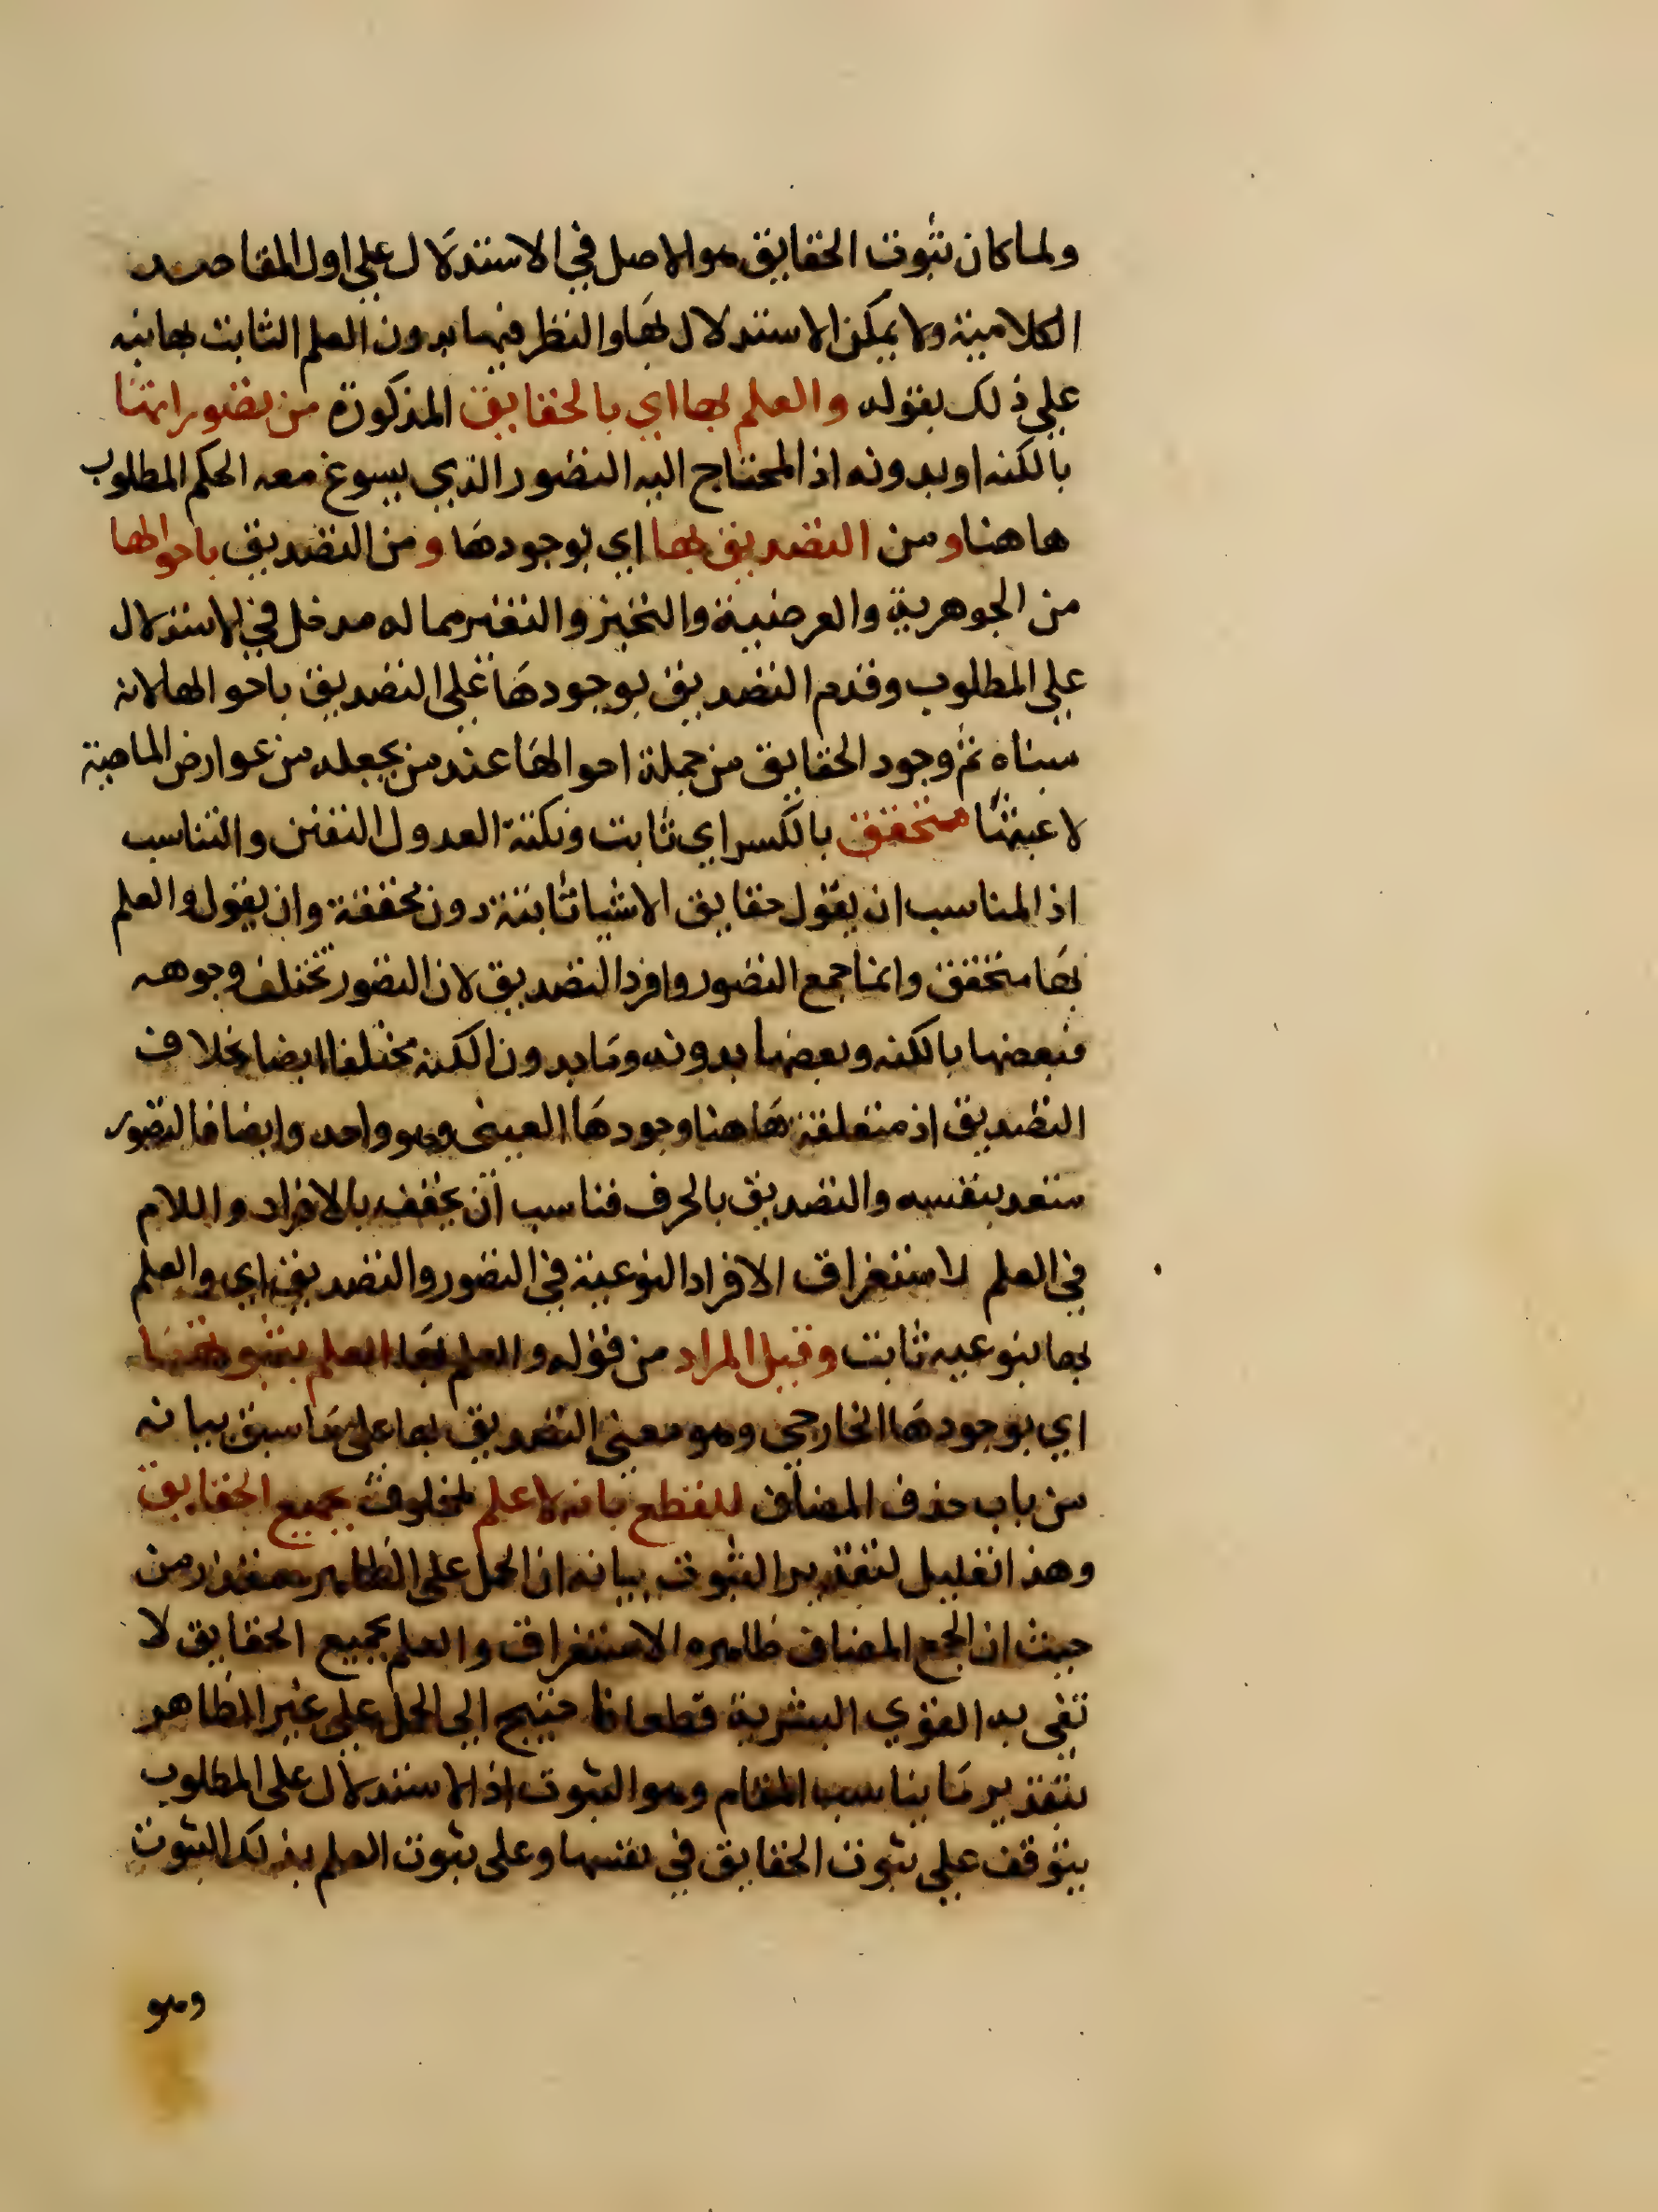 ولما كان ثبوت الحقايق هو الاصل في الاستدلال علي اول المقاصد
الكلامية ولا يمكن الاستدلال بها والنظر فيها بدون العلم الثابت بها نبه
علي ذلك بقوله والعلم بها اي بالحقايق المذكورة من تصوراتها
بالكنه او بدونه اذ المحتاج اليه التصور الذي يسوغ معه الحكم المطلوب
هاهنا ومن التصديق بها اي بوجودها ومن التصديق باحوالها
من الجوهرية والعرضية والتحيز والتغير مما له مدخل في الاستدلال
علي المطلوب وقدم التصديق بوجودها علي التصديق باحوالها لانه
مبناه ثم وجود الحقايق من جملة احوالها عند من يجعله من عوارض الماهية
لا عينها متحقق بالكسر اي ثابت ونكتة العدول التفنن والتناسب
اذ المناسب ان يقول حقايق الاشيا ثابتة دون محققة وان يقول والعلم
بها متحقق وانما جمع التصور وافرد التصديق لان التصور تختلف وجوهه
فبعضها بالكنه وبعضها بدونه وما بدون الكنه مختلفا ايضا بخلاف
التصديق اذ متعلقة هاهنا وجودها العيني وهو واحد وايضا فالتصور
متعد بنفسه والتصديق بالحرف فناسب ان يخفف بالافراد واللام
في العلم لاستغراق الافراد النوعية في التصور والتصديق اي والعلم
بها بنوعيه ثابت وقيل المراد من قوله والعلم بها العلم بثبوتها
اي بوجودها الخارجي وهو معني التصديق بها علي ما سبق بيانه
من باب حذف المضاف للقطع بانه لا علم لمخلوق بجميع الحقايق
وهذا تعليل لتقدير الثبوت بيانه ان الحمل علي الظاهر متعذر من
حيث ان الجمع المضاف ظاهره الاستغراق والعلم بجميع الحقايق لا
تفي به القوي البشرية قطعا فاحتيج الي الحمل علي غير الظاهر
بتقدير ما يناسب المقام وهو الثبوت اذ الاستدلال على المطلوب
يتوقف علي ثبوت الحقايق في نفسها وعلي ثبوت العلم بذلك الثبوت
وهو